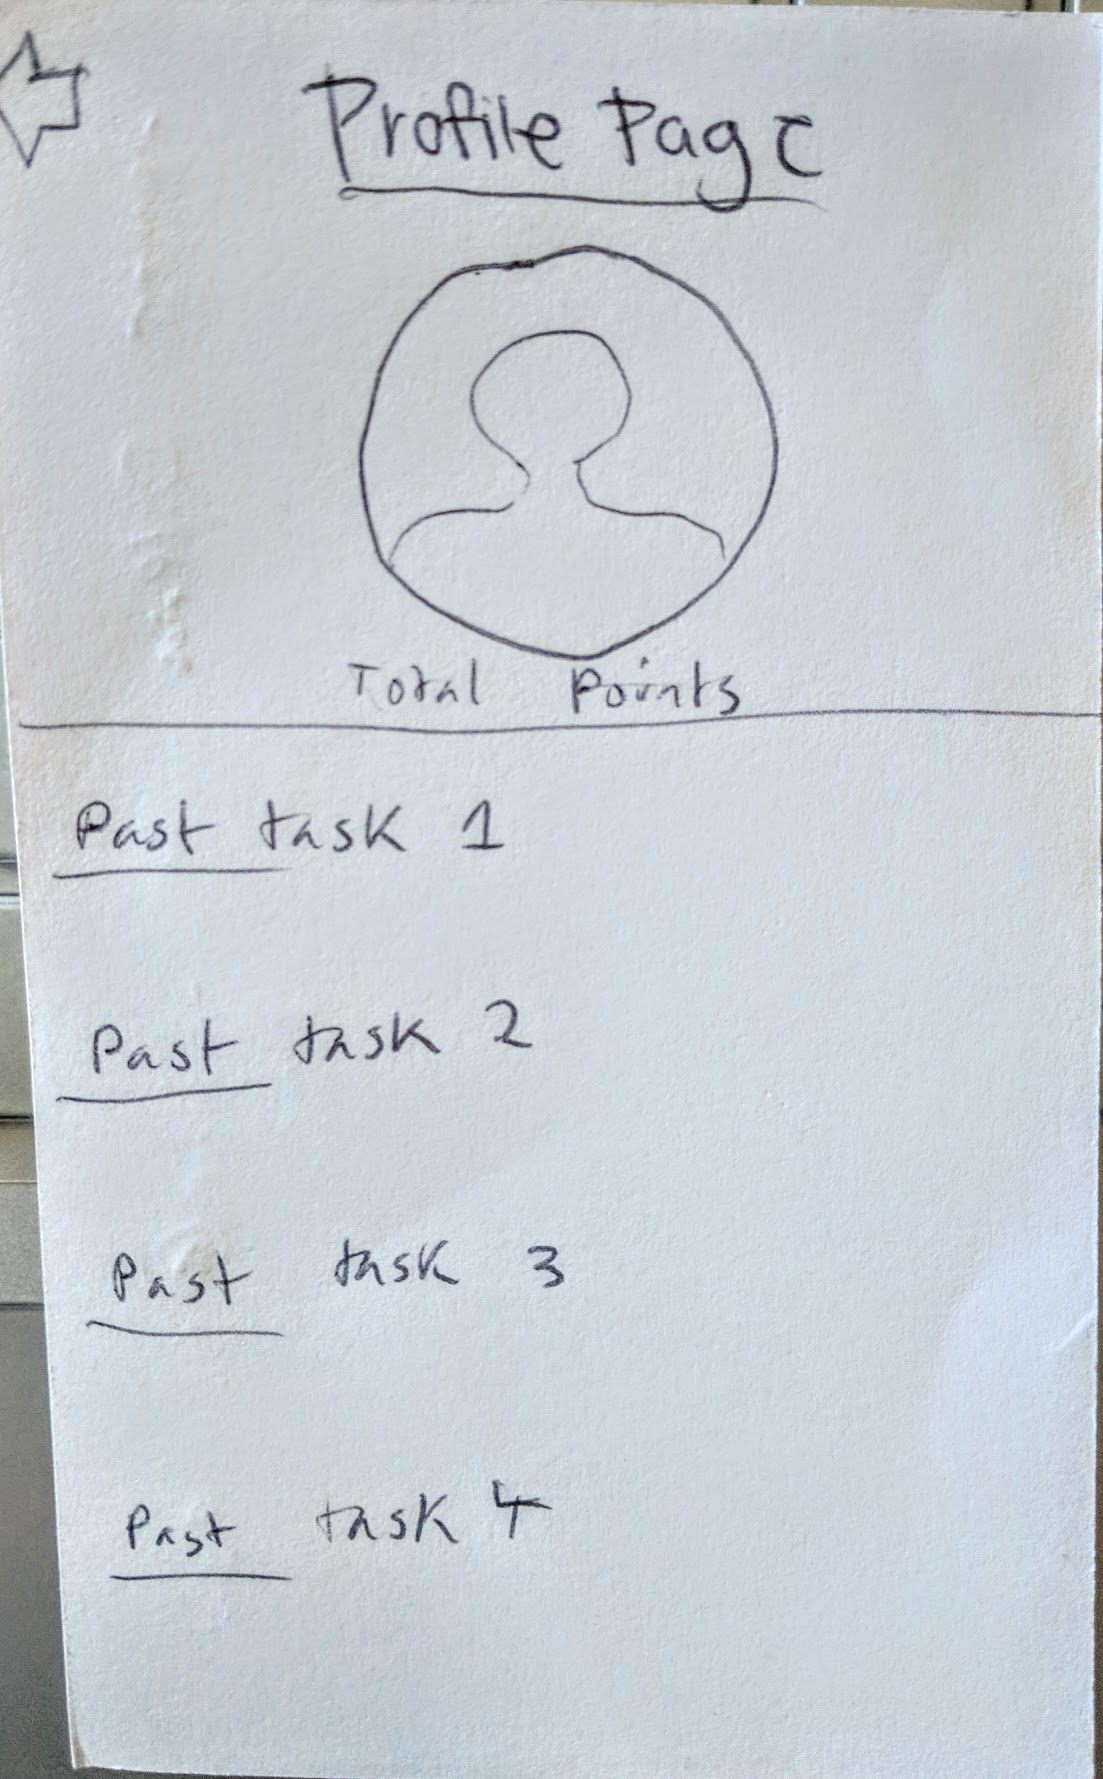 Profile Page
Total Points
Past task 1
Past task 2
Past task 3
Past task 4